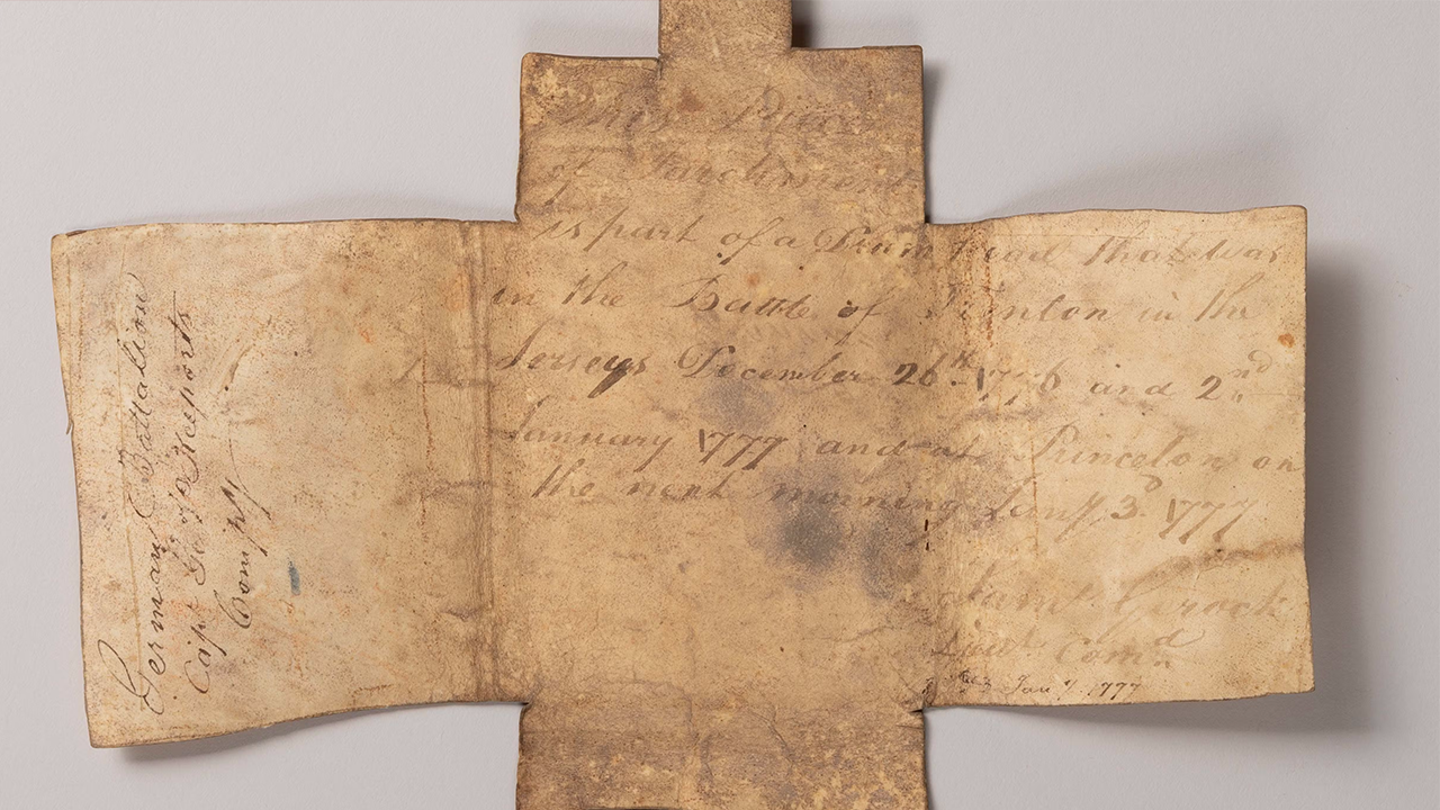 This Piece
of Parchment
is part of a Drum head that was
in the Battle of Trenton in the
Jerseys December 26th 1776 and 2nd
January 1777 and at Princeton on
the next morning Jany 3d 1777
Saml Gerock
Lieut Comd
Jan 7. 1777
German Battalion
Cap Geo P Keeports
Compy